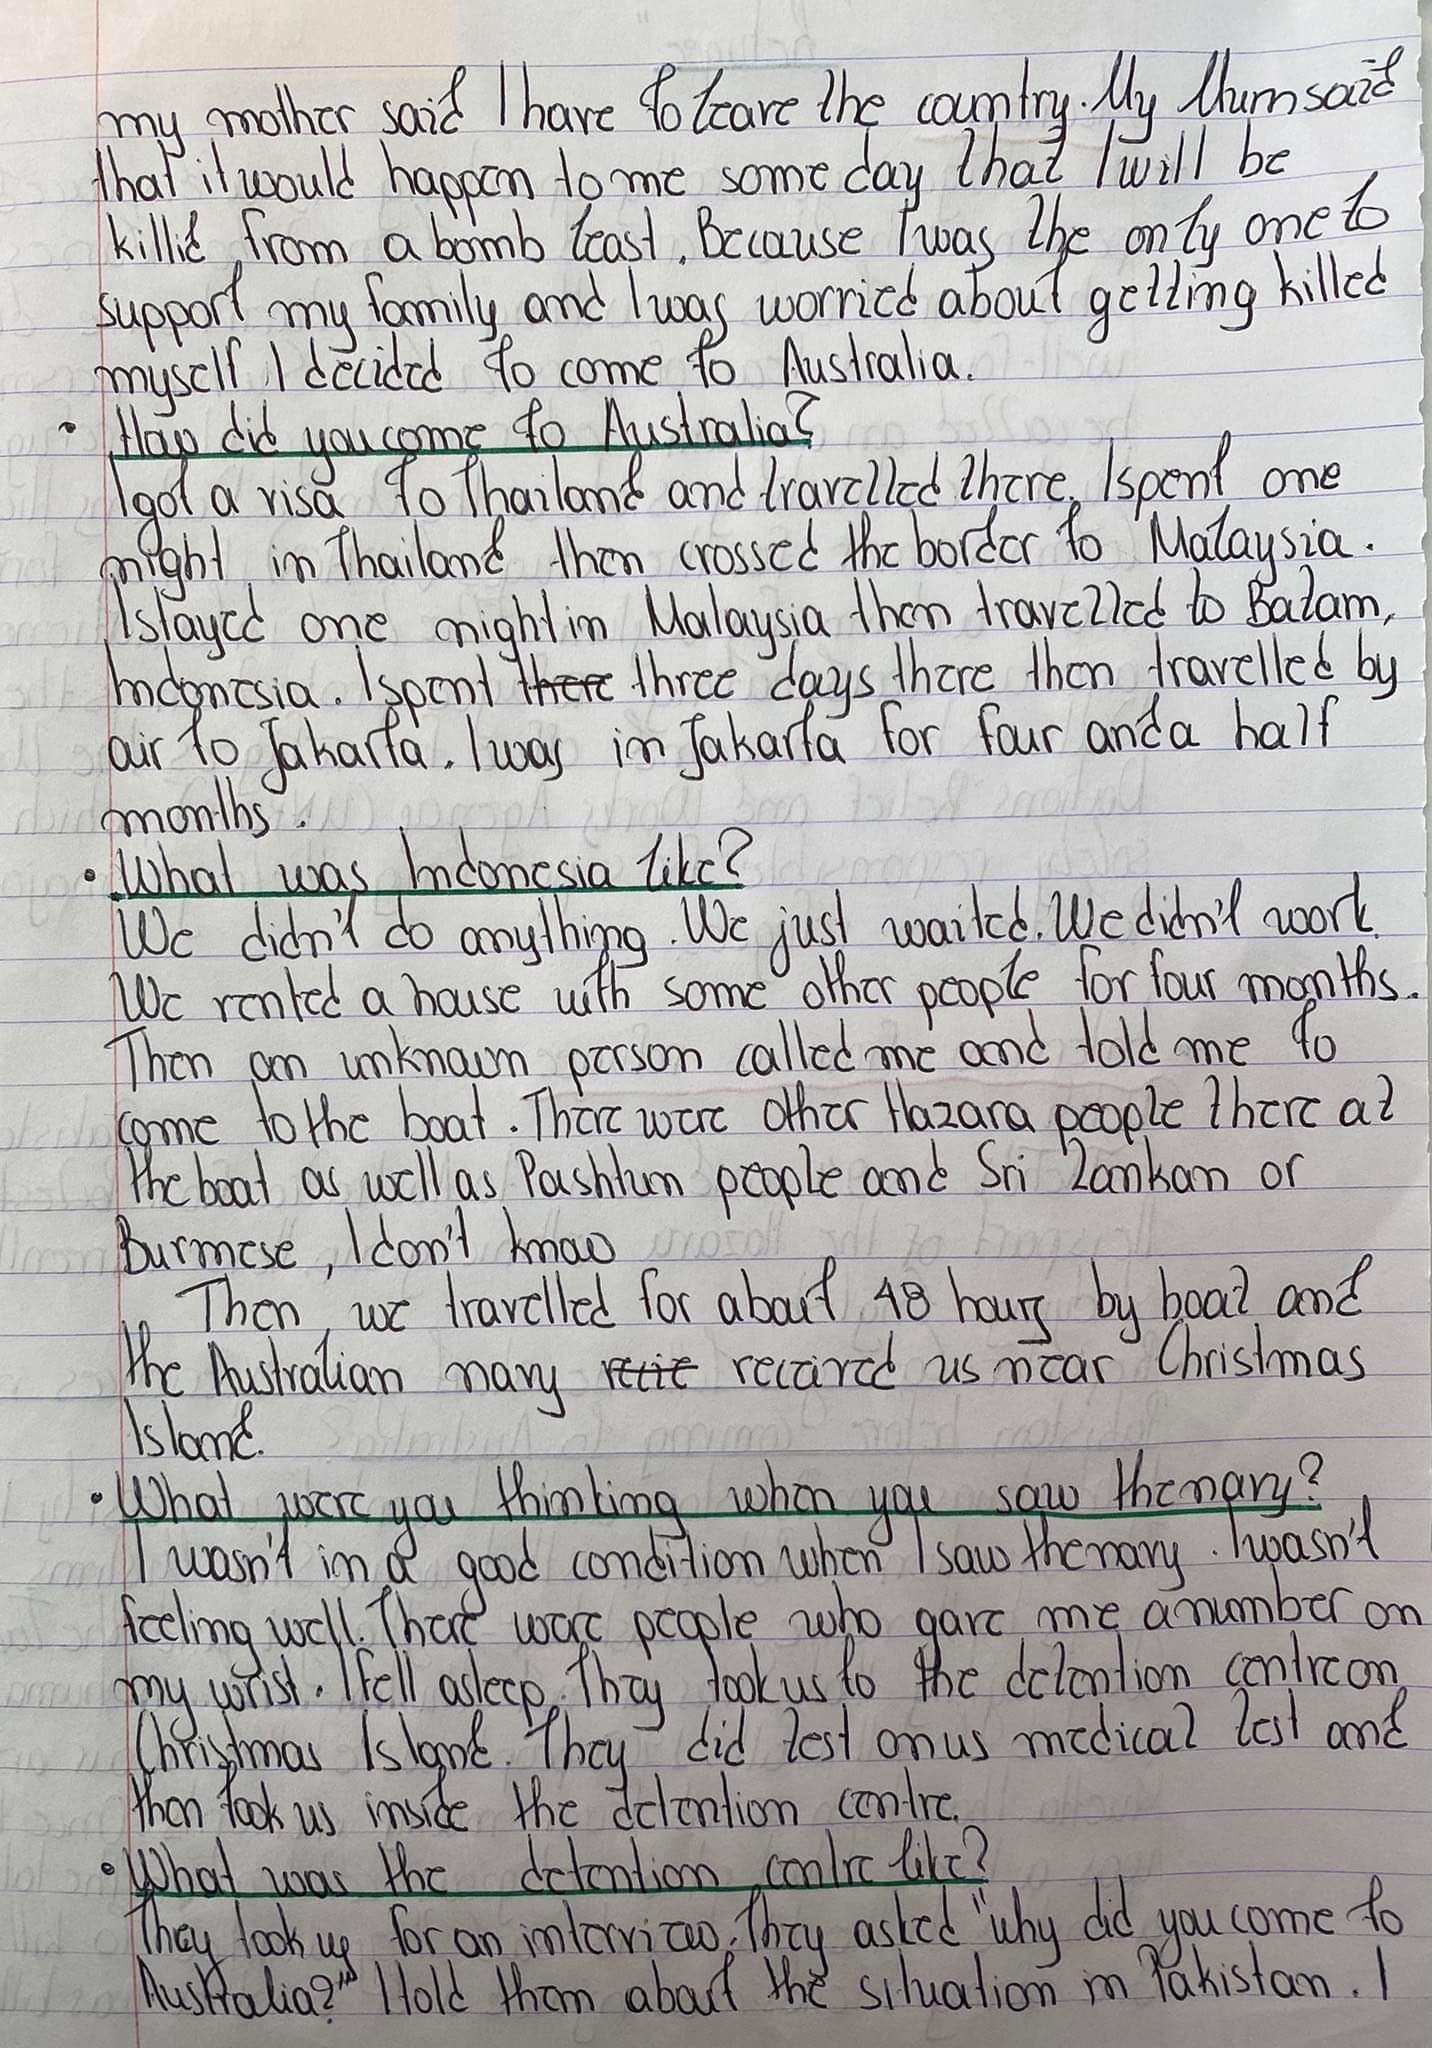 my mother said I have to leave the country. My Mum said
that it would happen to me some day that I will be
killed from a bomb least. Because I was the only one to
support my family and I was worried about getting killed
myself I decided to come to Australia.
• How did you come to Australia?
I got a visa to Thailand and travelled there. I spent one
night in Thailand then crossed the border to Malaysia.
I stayed one night in Malaysia then travelled to Batam,
Indonesia. I spent there three days there then travelled by
air to Jakarta. I was in Jakarta for four and a half
months.
• What was Indonesia like?
We didn't do anything. We just waited. We didn't work.
We rented a house with some other people for four months.
Then an unknown person called me and told me to
come to the boat. There were other Hazara people there at
the boat as well as Pashtun people and Sri Lankan or
Burmese, I don't know
Then we travelled for about 48 hours by boat and
the Australian navy recie received us near Christmas
Island.
• What were you thinking when you saw the navy?
I wasn't in a good condition when I saw the navy. I wasn't
feeling well. There were people who gave me a number on
my wrist. I fell asleep. They took us to the detention centre on
Christmas Island. They did test on us medical test and
then took us inside the detention centre.
• What was the detention centre like?
They took us for an interview. They asked "why did you come to
Australia?" I told them about the situation in Pakistan. I